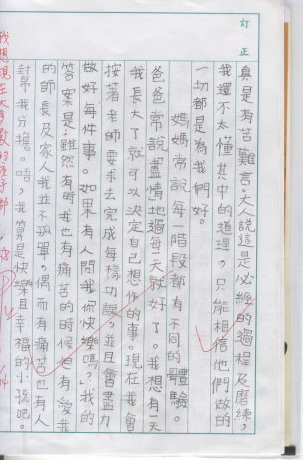 訂正
真是有苦難言。大人說這是必經的過程及磨練,
我還不太懂其中的道理,只能相信他們做的
一切都是為我們好。
媽媽常說每一階段都有不同的體驗。
爸爸常說盡情地過每一天就好了。我想有一天
我長大了就可以決定自己想作的事。現在我會
按著老師要求去完成每樣功課,並且會盡力
做好每件事。如果有人問我「你快樂嗎?」我的
答案是:雖然有時我也有痛苦的時候但有愛我
的師長及家人我並不孤單,偶而有痛苦也有人
幫我分擔。唔,我算是快樂且幸福的小孩吧。
我想現在大多數的孩子都